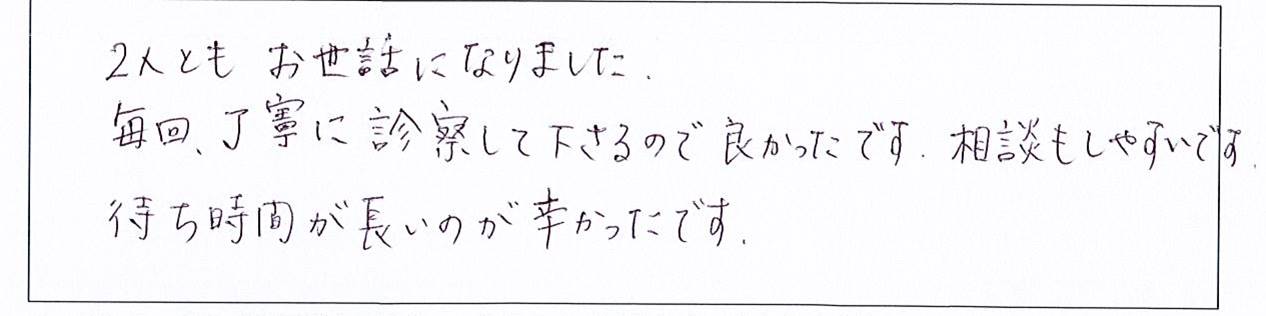 2人とも お世話になりました.
毎回、丁寧に診察して下さるので良かったです. 相談もしやすいです.
待ち時間が長いのが辛かったです.